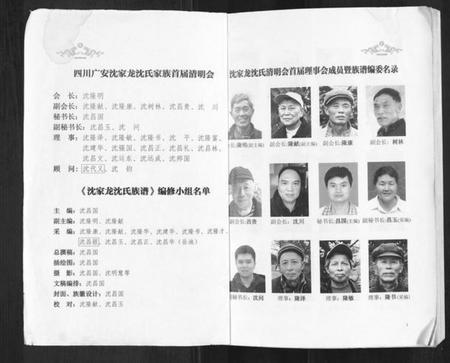 四川广安沈家龙沈氏家族首届清明会
会 长：沈隆明
副会长：沈隆献、沈隆康、沈树林、沈昌贵、沈 川
秘书长：沈昌国
副秘书长：沈昌玉、沈 问
理 事：沈隆泽、沈隆敏、沈隆书、沈 平、沈隆富、
沈建华、沈强国、沈昌正、沈昌礼、沈昌林、
沈昌文、沈远东、沈远成、沈邦国
顾 问：沈代义、沈 钧
《沈家龙沈氏族谱》编修小组名单
主 编：沈昌国
副主编：沈隆明、沈隆献
采 编：沈隆康、沈隆献、沈隆华、沈建华、沈隆书、沈隆才、
沈昌玉、沈昌正、沈昌华（岳池）
总撰稿：沈昌国
插绘图：沈昌国
摄 影：沈昌国、沈明慧等
文稿编排：沈昌国
封面、族徽设计：沈昌国
校 对：沈隆献、沈昌玉
沈家龙沈氏清明会首届理事会成员暨族谱编委名录
隆明(副主编) 副会长:隆献(副主编) 副会长:隆康 副会长:树林
副会长:昌贵 副会长:沈川 秘书长:昌国(主编) 副秘书长:昌玉(采编)
副秘书长:沈问 理事:隆泽 理事:隆敏 理事:隆书(采编)
1